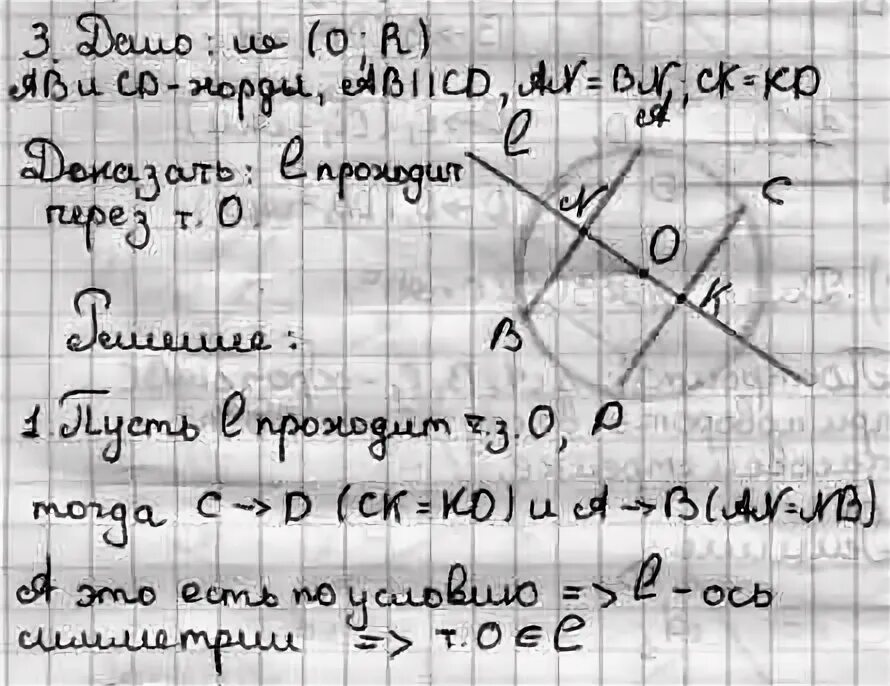 3. Дано: на (O; R)
AB и CD - хорды, AB || CD, AN = BN, CK = KD
Доказать: l проходит
через т. O.
l
A
N
C
O
K
B
D
Решение:
1. Пусть l проходит ч.з. O,
тогда C → D (CK = KD) и A → B (AN = NB)
А это есть по условию => l - ось
симметрии => т. O ∈ l